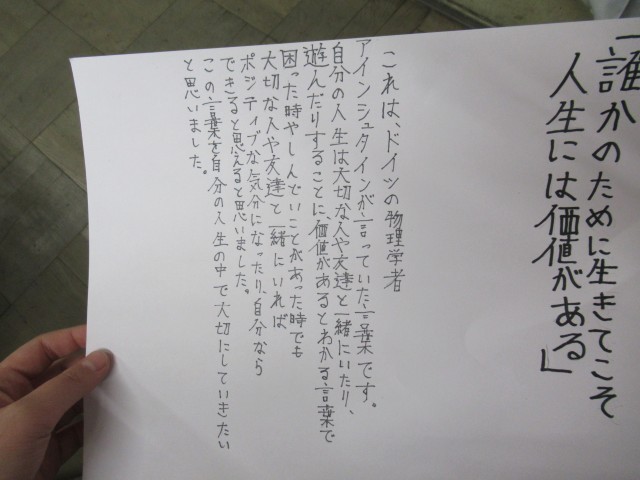 「誰かのために生きてこそ
人生には価値がある」
これは、ドイツの物理学者
アインシュタインが言っていた言葉です。
自分の人生は大切な人や友達と一緒にいたり、
遊んだりすることに、価値があるとわかる言葉で
困った時やしんどいことがあった時でも
大切な人や友達と一緒にいれば
ポジティブな気分になったり、自分なら
できると思えると思いました。
この言葉を自分の人生の中で大切にしていきたい
と思いました。